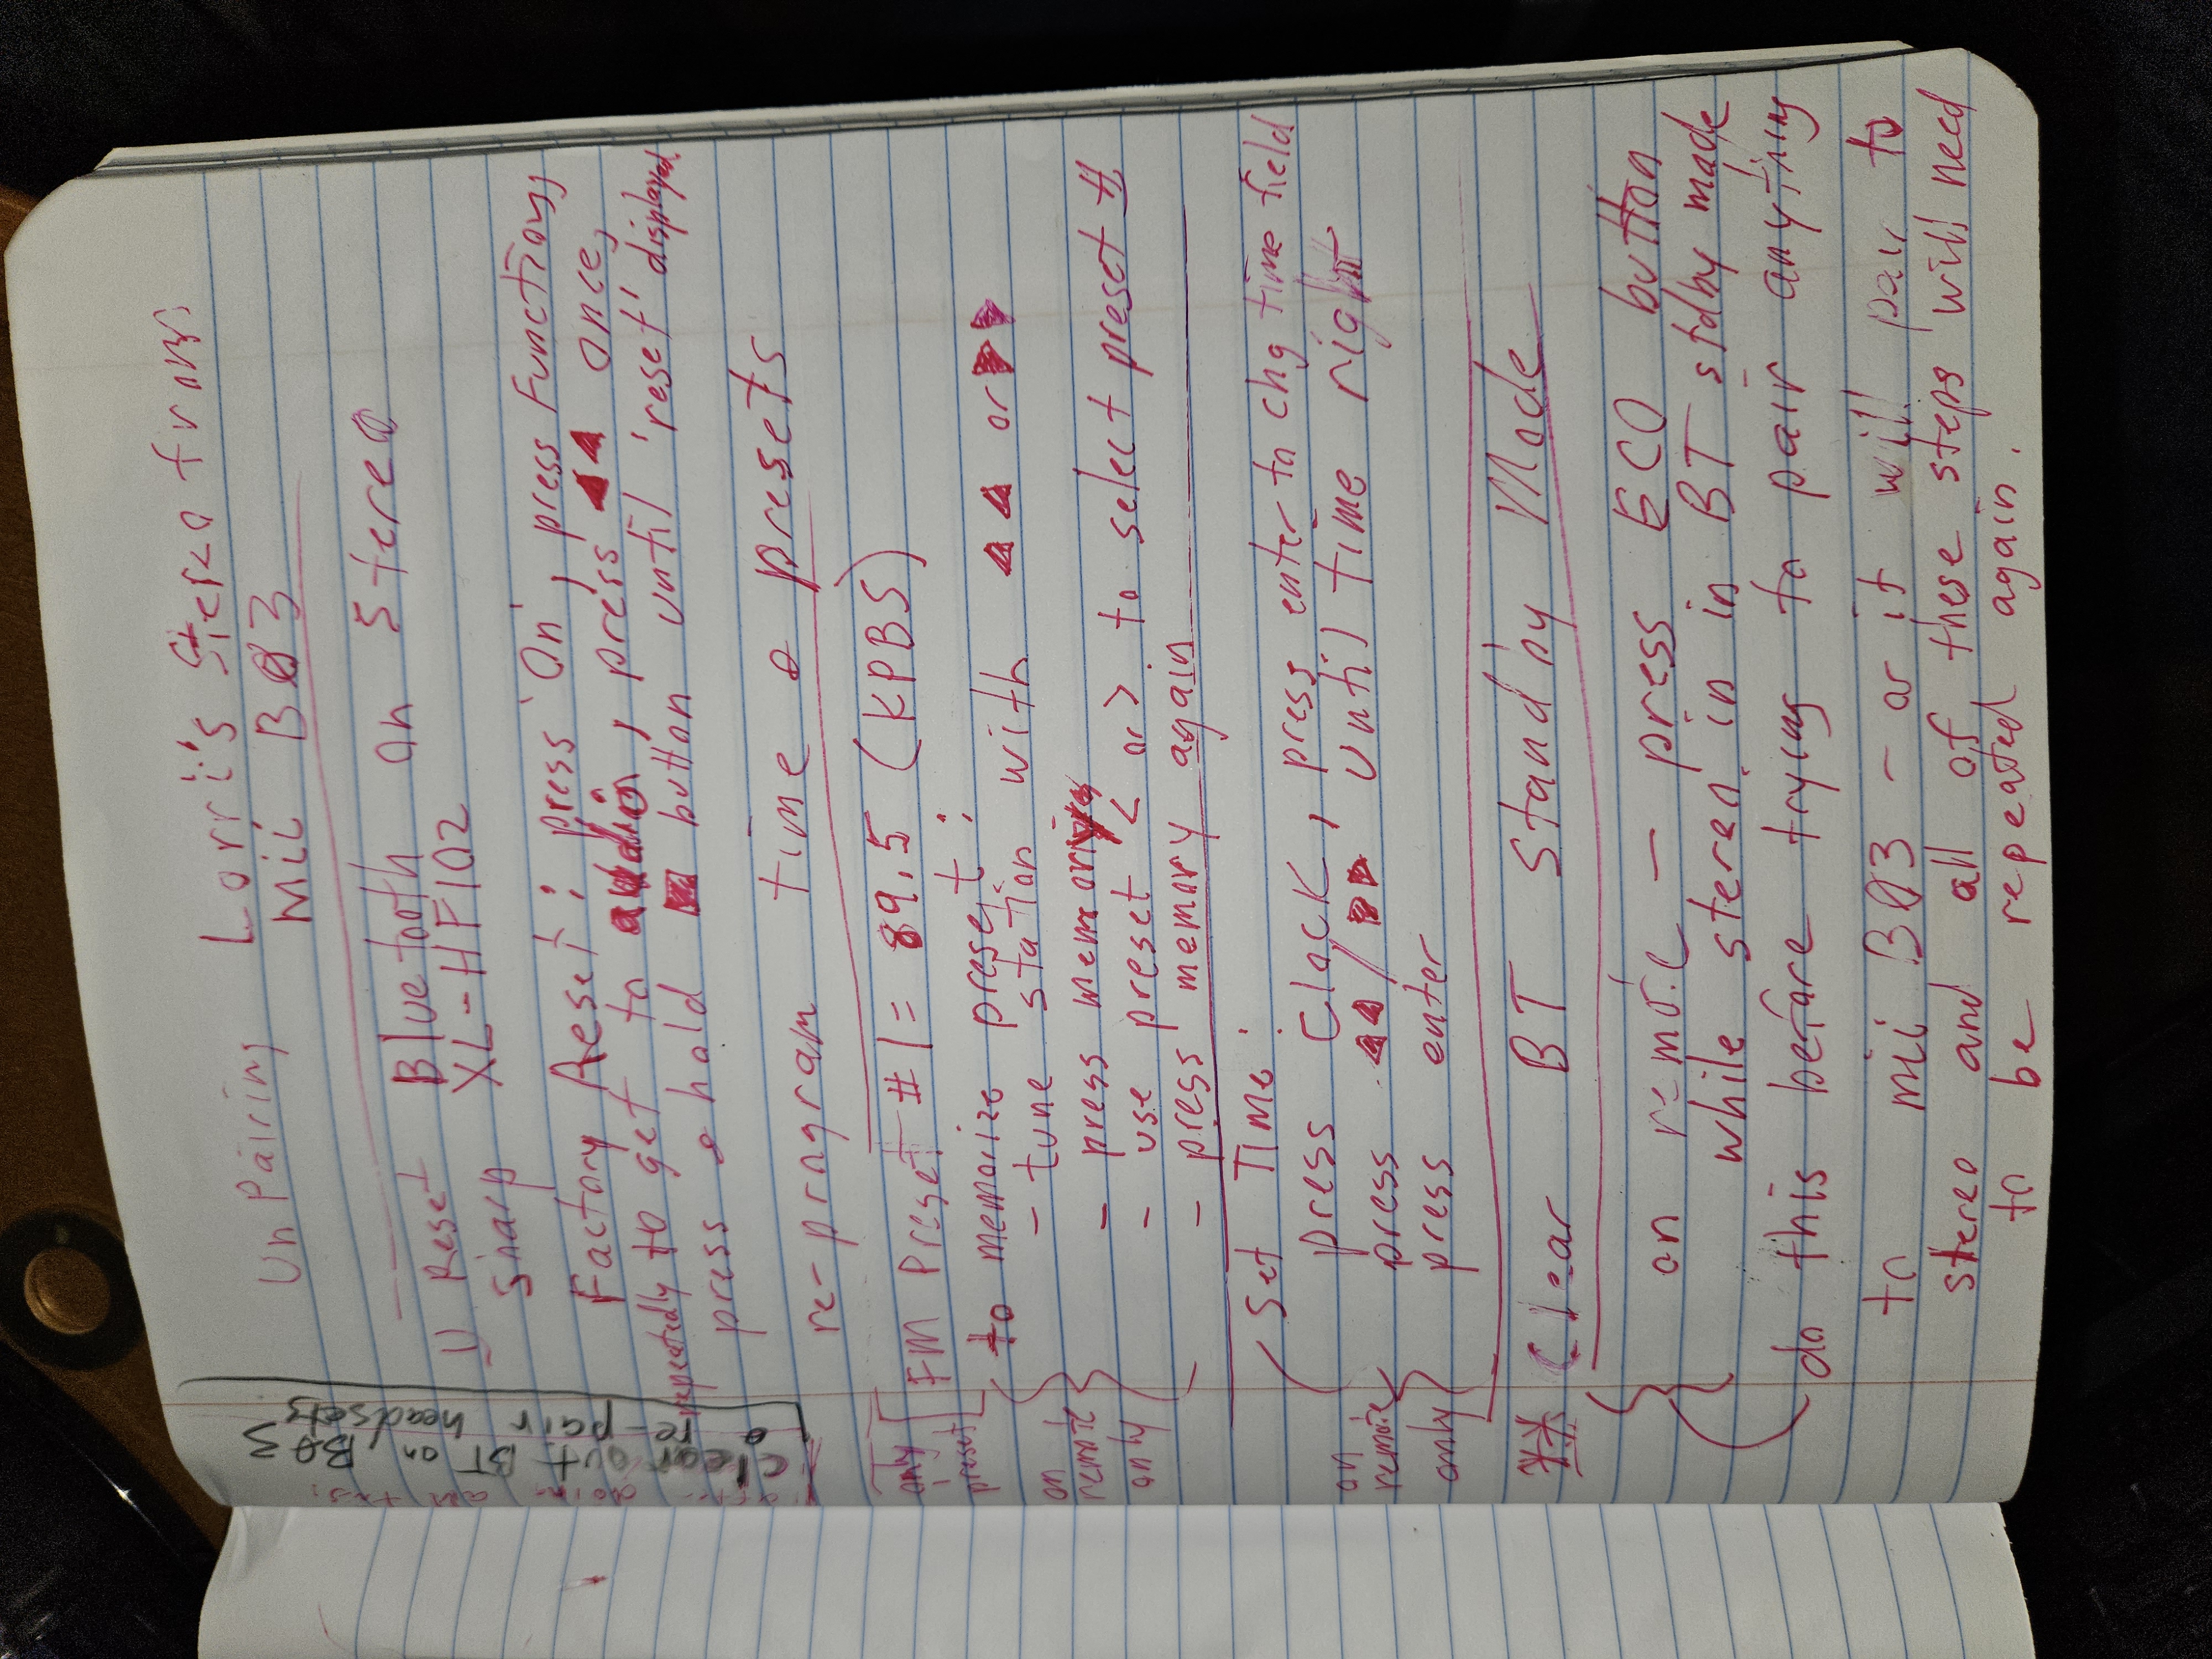 UnPairing Lorri's Stereo from
mii B03
1) Reset Bluetooth on Stereo
Sharp XL-HF102
Factory Reset: press 'On', press Function,
repeatedly to get to audio in, press ◀◀ once,
press & hold ■ button until 'reset' displayed.
re-program time & presets
FM Preset #1 = 89.5 (KPBS)
only
1
preset
to memorize preset:
- tune station with ◀◀ or ▶▶
- press memory
- use preset < or > to select preset #
- press memory again
on
remote
only
Set Time:
press Clock, press enter to chg time field
press ◀◀ / ▶▶ until time right
press enter
on
remote
only
** Clear BT Standby Mode
on remote - press ECO button
while stereo in in BT stdby mode
do this before trying to pair anything
to mii B03 - or it will pair to
stereo and all of these steps will need
to be repeated again.
after doing all this,
clear out BT on B03
& re-pair headsets